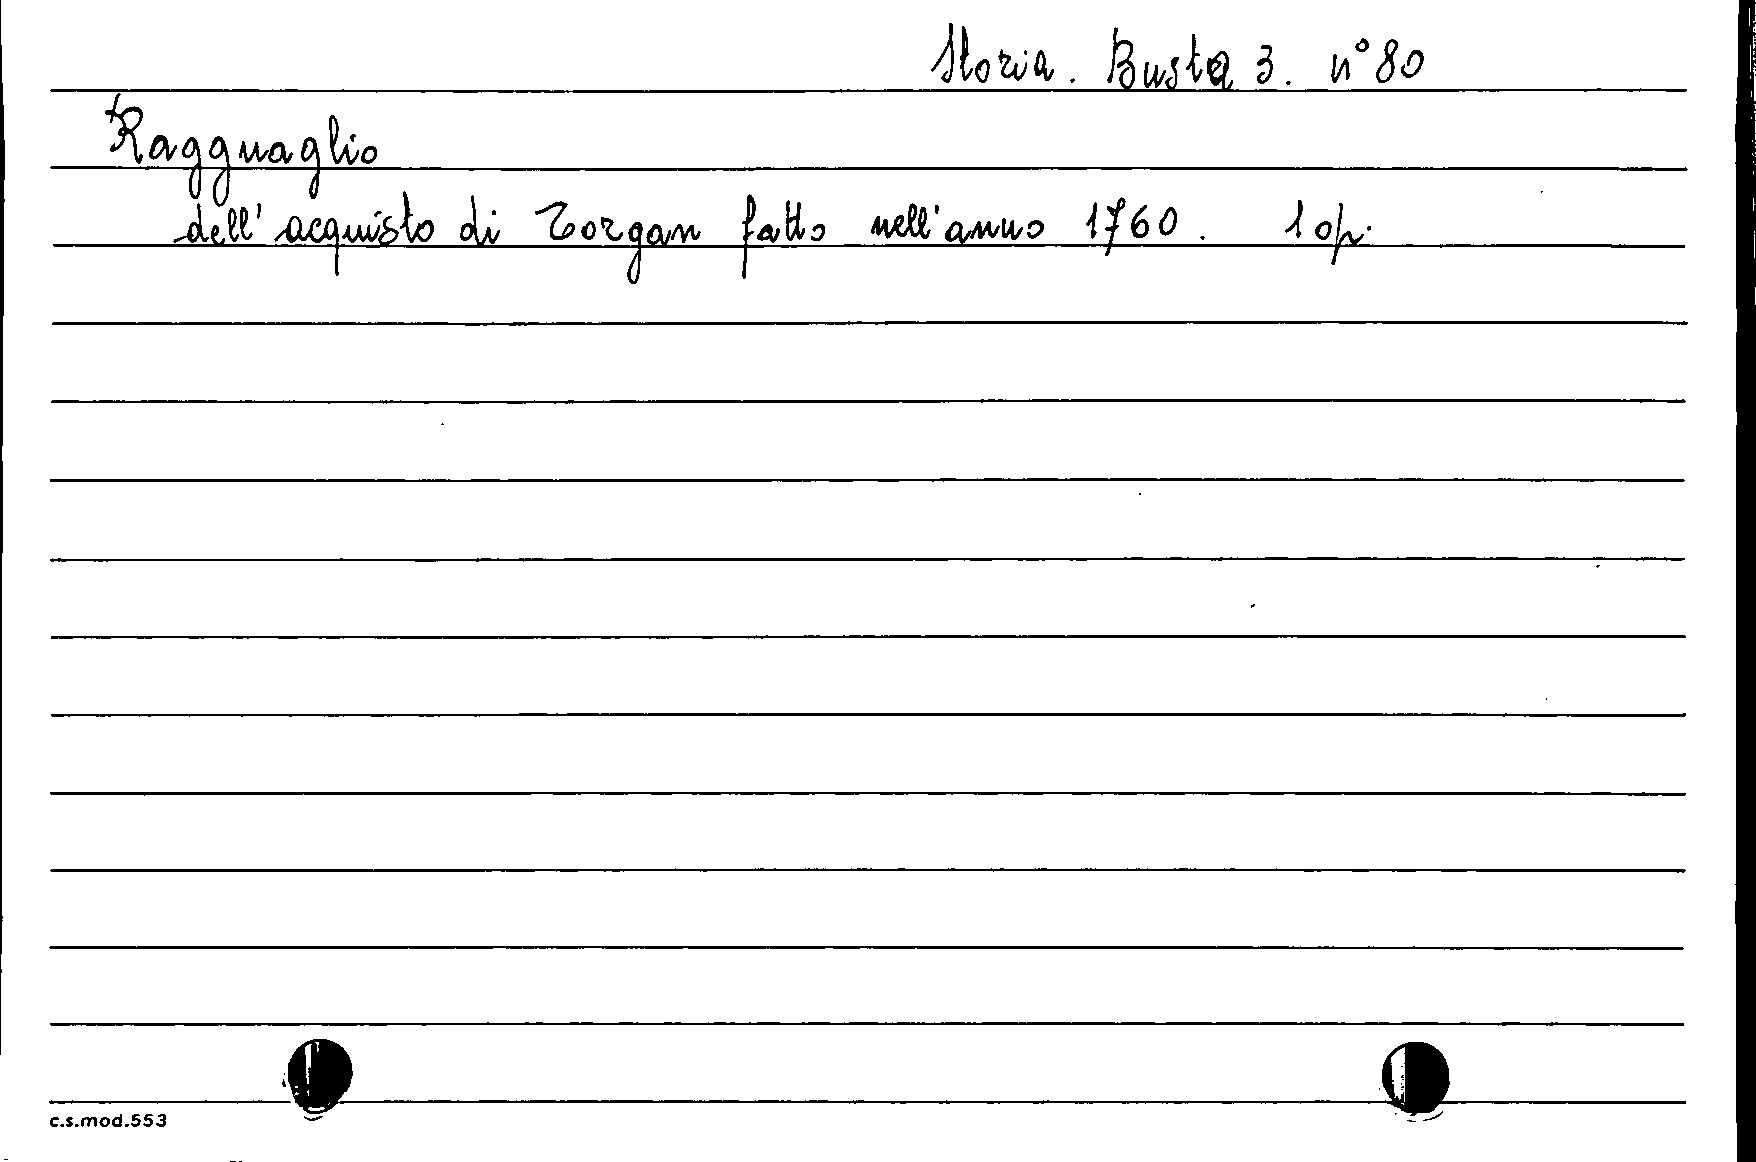 Storia. Busta 3. n° 80
Ragguaglio
dell'acquisto di Torgan fatto nell'anno 1760. 1 op.
c.s.mod.553